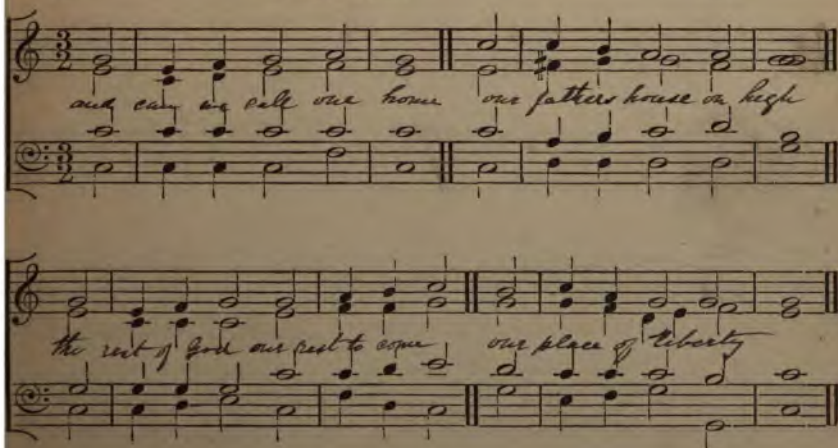 and can we call our home our fathers house on high
the rest of God our rest to come our place of liberty